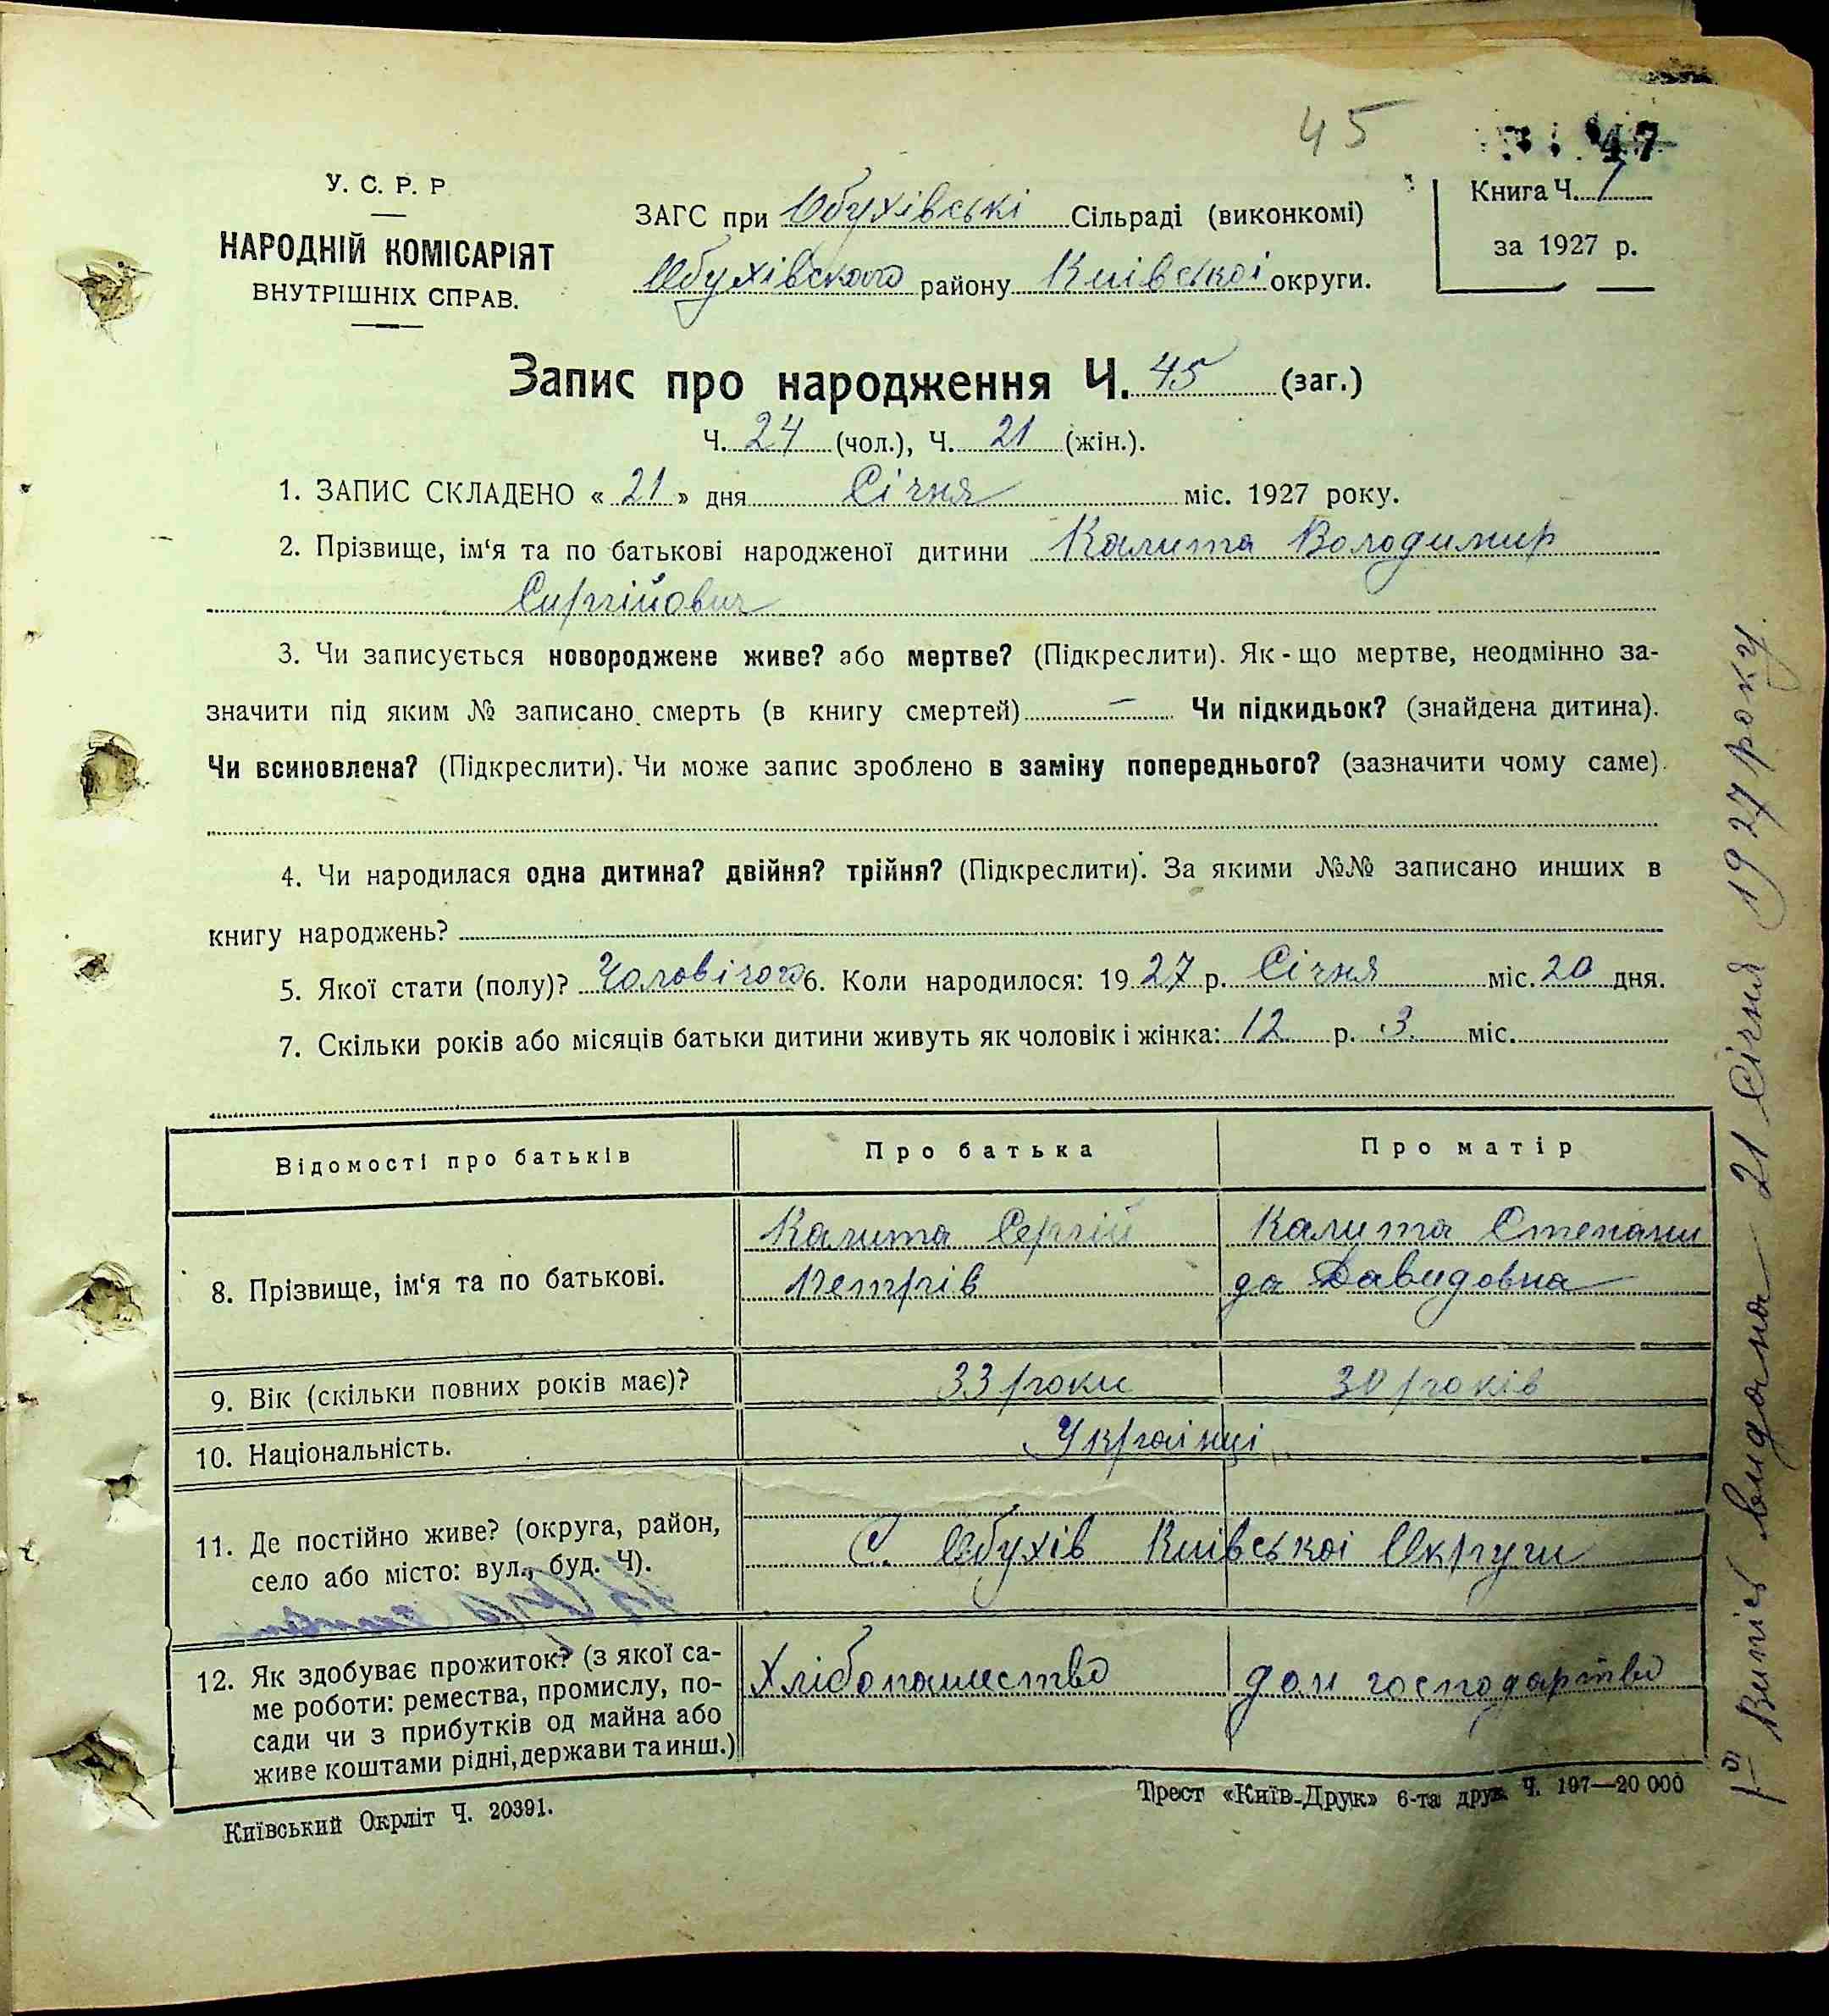 45
47
У. С. Р. Р
НАРОДНІЙ КОМІСАРІЯТ
ВНУТРІШНІХ СПРАВ.
ЗАГС при Обухівські Сільраді (виконкомі)
Обухівского району Київської округи.
Книга Ч. 1
за 1927 р.
Запис про народження Ч. 45 (заг.)
Ч. 24 (чол.), Ч. 21 (жін.).
1. ЗАПИС СКЛАДЕНО « 21 » дня Січня міс. 1927 року.
2. Прізвище, ім‘я та по батькові народженої дитини Калита Володимир
Сиргійович
3. Чи записується новороджене живе? або мертве? (Підкреслити). Як-що мертве, неодмінно за-
значити під яким № записано смерть (в книгу смертей) — Чи підкидьок? (знайдена дитина).
Чи всиновлена? (Підкреслити). Чи може запис зроблено в заміну попереднього? (зазначити чому саме).
4. Чи народилася одна дитина? двійня? трійня? (Підкреслити). За якими №№ записано инших в
книгу народжень?
5. Якої стати (полу)? Чоловічого 6. Коли народилося: 1927 р. Січня міс. 20 дня.
7. Скільки років або місяців батьки дитини живуть як чоловік і жінка: 12 р. 3 міс.
Відомості про батьків Про батька Про матір
Калита Сергій Калита Степани
8. Прізвище, ім‘я та по батькові. Петрів да Давидовна
9. Вік (скільки повних років має)? 33 роки 30 років
10. Національність. Українці
11. Де постійно живе? (округа, район,
село або місто: вул., буд. Ч). С. Обухів Київської Округи
12. Як здобуває прожиток? (з якої са-
ме роботи: ремества, промислу, по- Хлібопашество дом господарство
сади чи з прибутків од майна або
живе коштами рідні, держави та инш.)
Київський Окрліт Ч. 20391.
Трест «Київ-Друк» 6-та друк. Ч. 197—20 000
Випіс видано 21 Січня 1927 року.